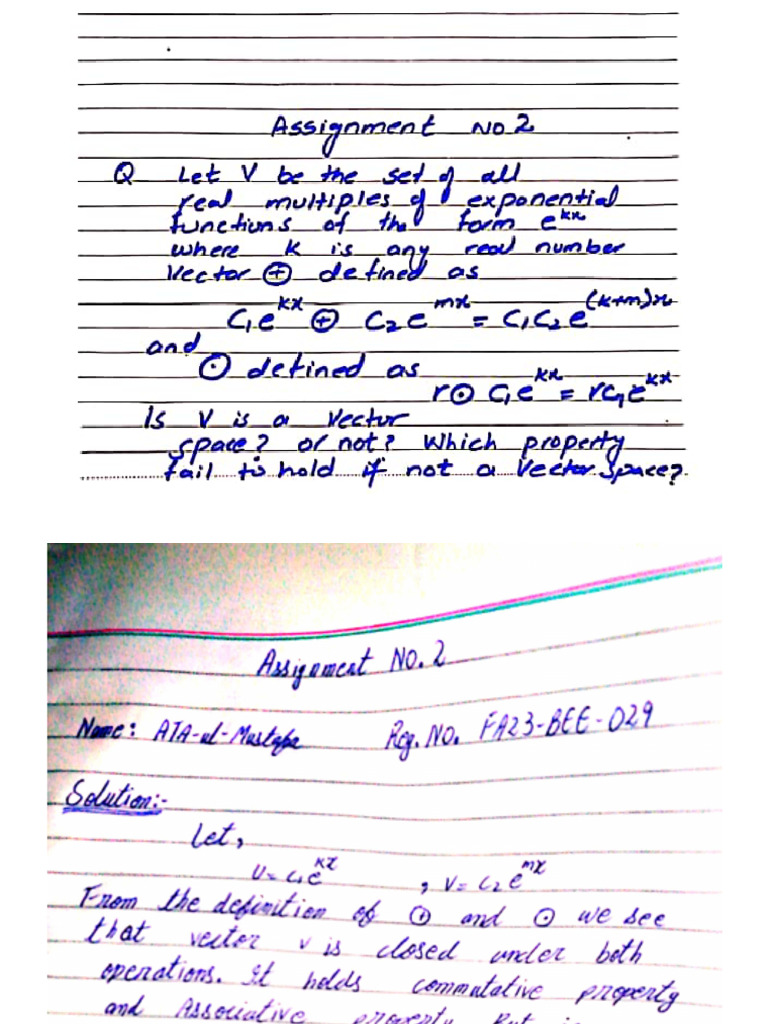 Assignment No 2
Q Let V be the set of all
real multiples of exponential
functions of the form e^kx
where k is any real number
Vector ⊕ defined as
C₁e^kx ⊕ C₂e^mx = C₁C₂e^(k+m)x
and
⊙ defined as
r⊙C₁e^kx = rC₁e^kx
Is V is a Vector
space? or not? Which property
fail to hold if not a Vector Space?
Assignment NO. 2
Name: ATA-ul-Mustafa Reg. NO. FA23-BEE-029
Solution:-
Let,
U = c₁e^kx , V = c₂e^mx
From the definition of ⊕ and ⊙ we see
that vector v is closed under both
operations. It holds commutative property
and Associative property. But